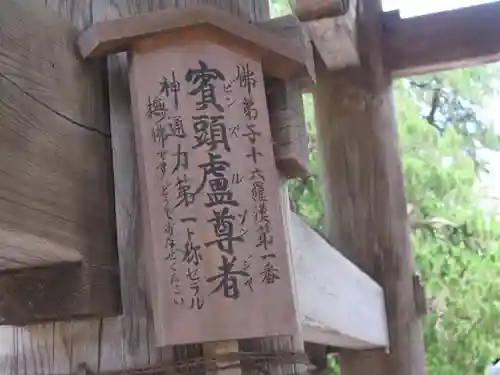 佛弟子十六羅漢第一番
賓頭盧尊者
ビンズルソンジャ
神通力第一ト称セラル
撫佛です どうぞなせてください